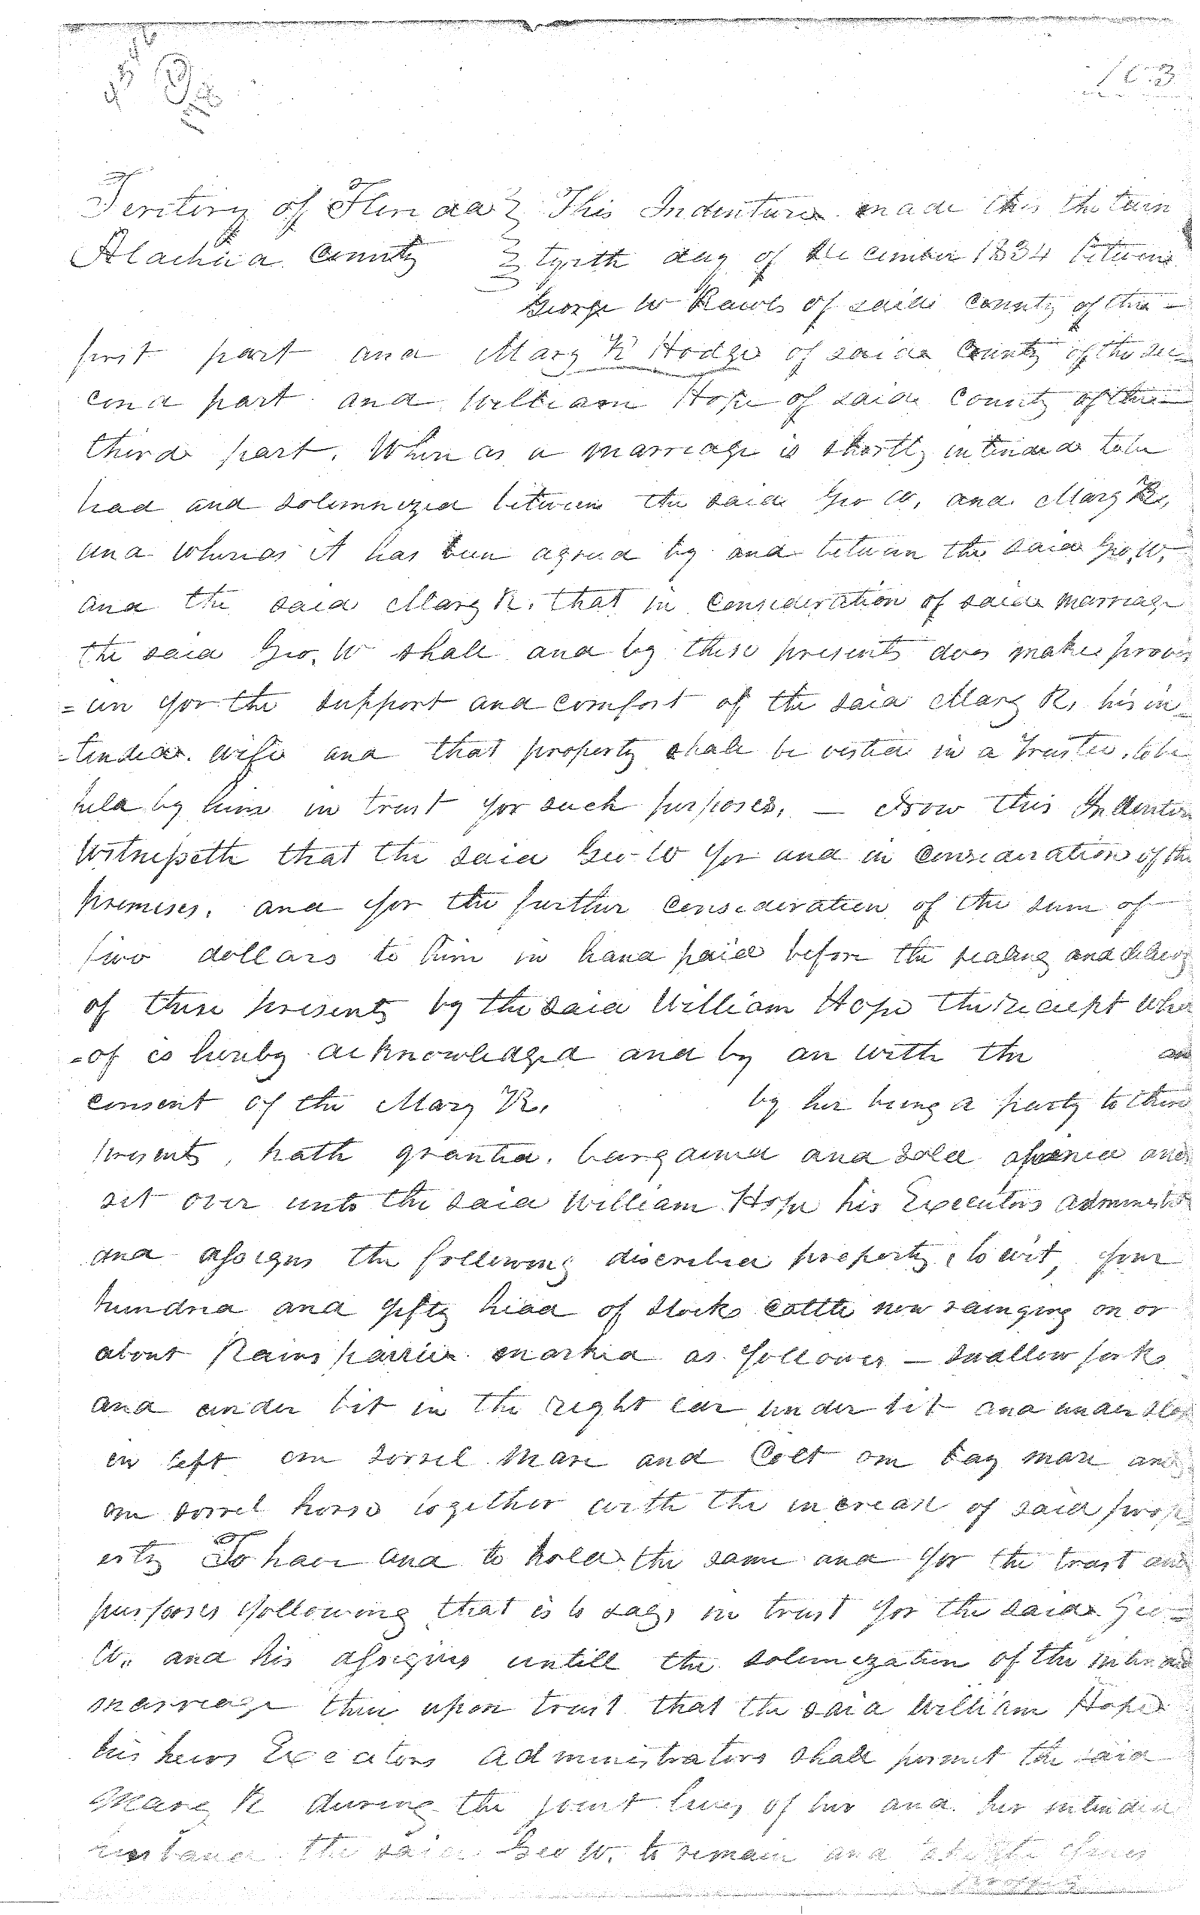 103
Teritiry of Florida } This Indenture made this the twin
Alachua County } tyith day of December 1834 between
George W Rawls of said County of the
first part and Mary K Hodge of said County of the sec
cond part and William Hope of said County of the
third part. Whereas a marriage is shortly intended to be
had and solemnized between the said Geo W. and Mary K.
and whereas it has been agreed by and between the said Geo. W.
and the said Mary K. that in consideration of said marriage
the said Geo. W shall and by these presents does make provis
=ion for the support and comfort of the said Mary K. his in
-tended wife and that property shall be vested in a Trustee, to be
held by him in trust for such purposes. — Now this Indenture
Witnesseth that the said Geo W for and in consideration of the
premises. and for the further consideration of the sum of
two dollars to him in hand paid before the sealing and delivery
of these presents by the said William Hope the receipt whe
-of is hereby acknowledged and by an with the and
consent of the Mary K. by her being a party to these
presents, hath granted. bargained and sold and
set over unto the said William Hope his Executors administ
and assigns the following discribed property, to wit, four
hundred and fifty head of stock cattle now rainging on or
about Rains parrier marked as follows — swallow fork
and under bit in the right ear under bit and under slop
in left one sorrel mare and Colt one bay mare and
one sorrel horse together with the increase of said prop
erty To have and to hold the same and for the trust and
purposes following that is to say, in trust for the said Geo
W. and his assigns untill the solemnization of the intended
marriage then upon trust that the said William Hope
his heirs Executors administrators shall permit the said
Mary K during the joint lives of her and her intended
husband the said Geo W. to remain and